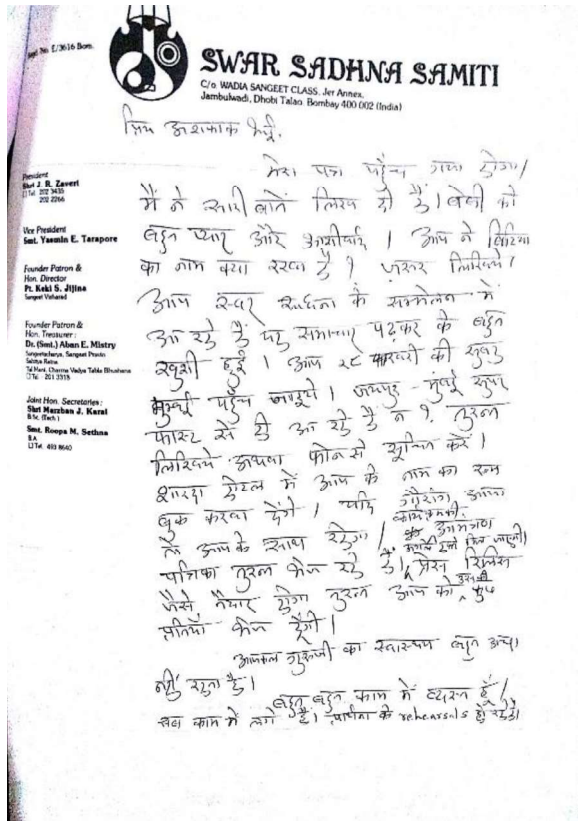 Regd No. E/3616 Bom.
SWAR SADHNA SAMITI
C/o. WADIA SANGEET CLASS. Jer Annex,
Jambulwadi, Dhobi Talao. Bombay 400 002 (India)
प्रिय अशफाक भाई,
President
Shri J. R. Zaveri
Tel. 202 3435
202 2266
Vice President
Smt. Yasmin E. Tarapore
Founder Patron &
Hon. Director
Pt. Keki S. Jijina
Sangeet Visharad
Founder Patron &
Hon. Treasurer:
Dr. (Smt.) Aban E. Mistry
Sangeetacharya, Sangeet Pravin
Sahitya Ratna
Tal Mani, Charma Vadya Tabla Bhushana
Tel. 201 3318
Joint Hon. Secretaries:
Shri Marzban J. Karai
B.Sc. (Tech.)
Smt. Roopa M. Sethna
B.A.
Tel. 493 8640
मेरा पत्र पहुँच गया होगा।
मैं ने सारी बातें लिख दी हैं। बेबी को
बहुत प्यार और आशीर्वाद। आप ने बिटिया
का नाम क्या रखा है? जरूर लिखिये।
आप स्वर साधना के सम्मेलन में
आ रहे हैं यह समाचार पढ़कर के बहुत
खुशी हुई। आप २८ फरवरी की सुबह
मुम्बई पहुँच जाइये। जयपुर - मुंबई सुपर
फास्ट से ही आ रहे है न? तुरन्त
लिखिये अथवा फोन से सूचित करें।
शारदा होटल में आप के नाम का रूम
बुक करवा देंगे। यदि गौरांग आया
तो आपके साथ रहेगा। कार्यक्रम की आमंत्रण
पत्रिका तुरन्त भेज रहे हैं। प्रेस रिलिस
जैसे तैयार होगा तुरन्त आप को उसकी कुछ
प्रतियाँ भेज दूँगी।
आजकल गुरुजी का स्वास्थ्य बहुत अच्छा
नहीं रहता है।
बहुत बहुत काम में व्यस्त हूँ।
सब काम में लगे हैं। प्रार्थना के rehearsals हो रहे है।